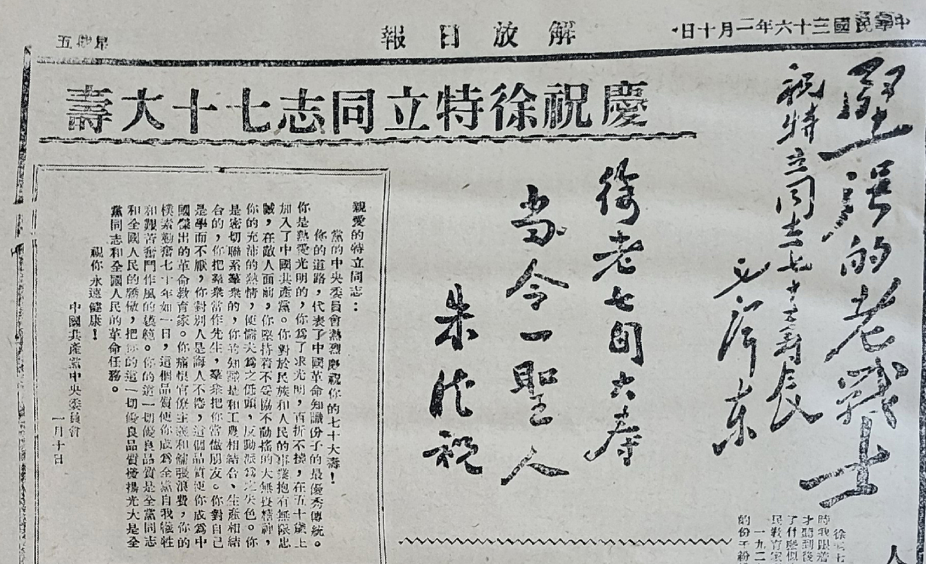 中華民國三十六年一月十日
解放日報
星期五
慶祝徐特立同志七十大壽
堅强的老戰士
祝特立同志七十大寿辰
毛泽东
徐老七旬大寿
当今一聖人
朱德祝
親愛的特立同志：
黨的中央委員會熱烈慶祝你的七十大壽！
你的道路，代表了中國革命知識份子的最優秀傳統。
你是熱愛光明的，你爲了求光明，百折不撓，在五十歲上
加入了中國共產黨。你對於民族和人民的事業抱有無限忠
誠，在敵人面前，你堅持着不妥協不動搖的大無畏精神，
你的充沛的熱情，使懦夫爲之低頭，反動派爲之失色。你
是密切聯系羣衆的，你的知識是和工農相結合，生產相結
合的，你把羣衆當作先生，羣衆把你當做朋友。你對自己
是學而不厭，你對別人是誨人不倦，這個品質使你成爲中
國傑出的革命教育家。你痛恨官僚主義和鋪張浪費，你的
樸素勤奮七十年如一日，這個品質使你成爲全黨自我犧牲
和艱苦奮鬥作風的模範。你的這一切優良品質是全黨同志
和全國人民的驕傲，把你的這一切優良品質發揚光大是全
黨同志和全國人民的革命任務。
祝你永遠健康！
中國共產黨中央委員會
一月十日